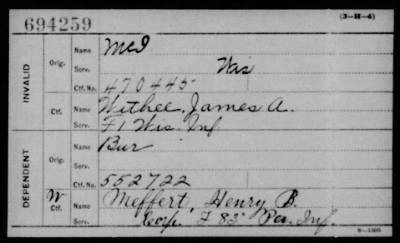 694259
(3-H-4)
INVALID
Orig.
Name McI
Serv. Wis
Ctf. No. 470445
Ctf.
Name Withee, James A.
Serv. F1 Wis. Inf
DEPENDENT
Orig.
Name Bur
Serv.
Ctf. No. 552722
W Ctf.
Name Meffert, Henry B.
Serv. Corp. F 83" Pa. Inf.